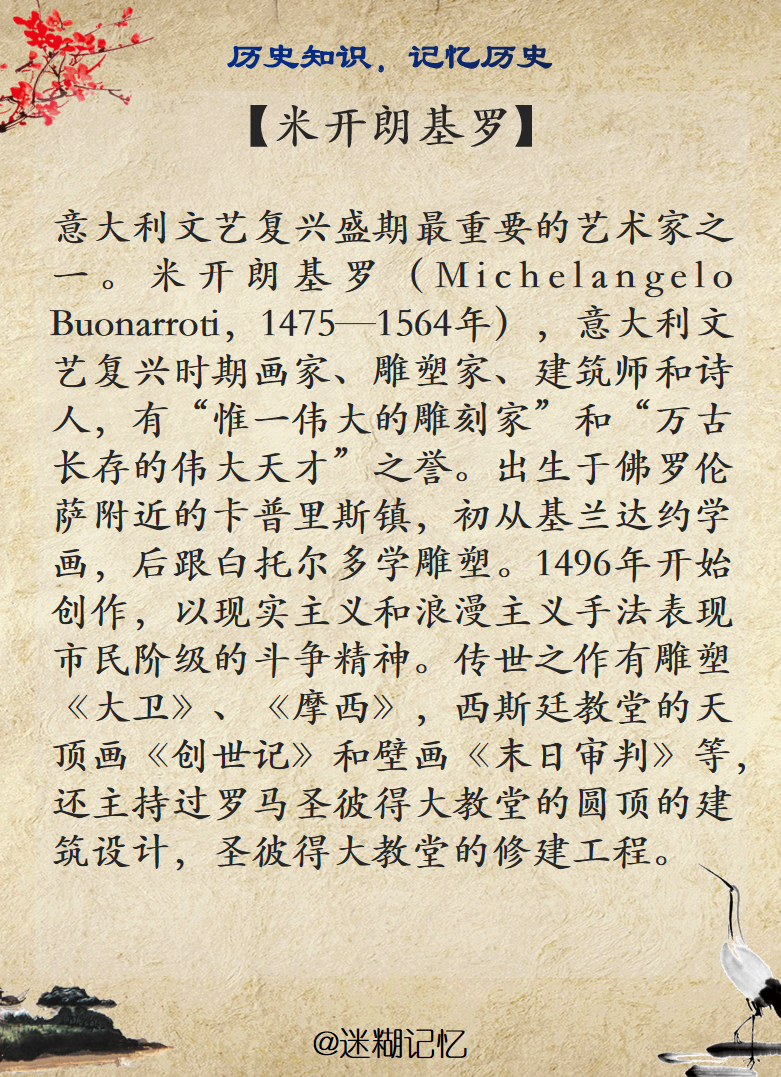 历史知识，记忆历史
【米开朗基罗】
意大利文艺复兴盛期最重要的艺术家之
一。米开朗基罗（Michelangelo
Buonarroti，1475—1564年），意大利文
艺复兴时期画家、雕塑家、建筑师和诗
人，有“惟一伟大的雕刻家”和“万古
长存的伟大天才”之誉。出生于佛罗伦
萨附近的卡普里斯镇，初从基兰达约学
画，后跟白托尔多学雕塑。1496年开始
创作，以现实主义和浪漫主义手法表现
市民阶级的斗争精神。传世之作有雕塑
《大卫》、《摩西》，西斯廷教堂的天
顶画《创世记》和壁画《末日审判》等，
还主持过罗马圣彼得大教堂的圆顶的建
筑设计，圣彼得大教堂的修建工程。
@迷糊记忆